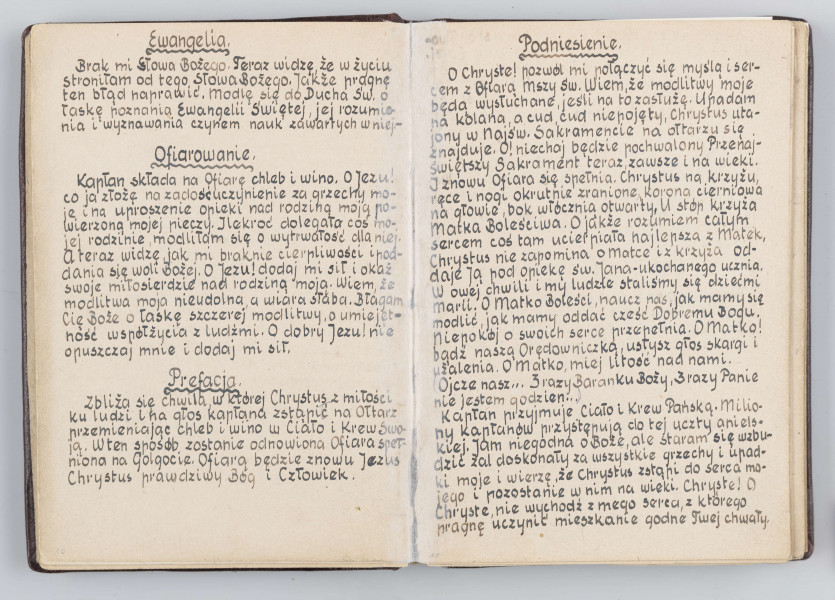 Ewangelia.
Brak mi Słowa Bożego. Teraz widzę, że w życiu
stroniłam od tego Słowa Bożego. Jakże pragnę
ten błąd naprawić. Modlę się do Ducha Św. o
łaskę poznania Ewangelii Świętej, jej rozumie-
nia i wyznawania czynem nauk zawartych w niej.-
Ofiarowanie.
Kapłan składa na Ofiarę chleb i wino. O Jezu!
co ja złożę na zadośćuczynienie za grzechy mo-
je i na uproszenie opieki nad rodziną moją po-
wierzoną mojej pieczy. Ilekroć dolegało coś mo-
jej rodzinie, modliłam się o wytrwałość dla niej.
A teraz widzę, jak mi braknie cierpliwości i pod-
dania się woli Bożej. O Jezu! dodaj mi sił i okaż
swoje miłosierdzie nad rodziną moją. Wiem, że
modlitwa moja nieudolna, a wiara słaba. Błagam
Cię Boże o łaskę szczerej modlitwy, o umiejęt-
ność współżycia z ludźmi. O dobry Jezu! nie
opuszczaj mnie i dodaj mi sił.
Prefacja.
Zbliża się chwila, w której Chrystus z miłości
ku ludzi i na głos kapłana zstąpić na Ołtarz
przemieniając chleb i wino w Ciało i Krew Swo-
ją. W ten sposób zostanie odnowiona Ofiara speł-
niona na Golgocie. Ofiarą będzie znowu Jezus
Chrystus prawdziwy Bóg i Człowiek.
Podniesienie.
O Chryste! pozwól mi połączyć się myślą i ser-
cem z Ofiarą Mszy Św. Wiem, że modlitwy moje
będą wysłuchane, jeśli na to zasłużę. Upadam
na kolana, a cud, cud niepojęty, Chrystus uta-
jony w Najśw. Sakramencie na ołtarzu się
znajduje. O! niechaj będzie pochwalony Przenaj-
świętszy Sakrament teraz, zawsze i na wieki.
I znowu Ofiara się spełnia. Chrystus na krzyżu,
ręce i nogi okrutnie zranione, korona cierniowa
na głowie, bok włócznią otwarty. U stóp krzyża
Matka Boleściwa. O jakże rozumiem całym
sercem coś tam ucierpiała najlepsza z Matek,
Chrystus nie zapomina o Matce i z krzyża od-
daje Ją pod opiekę św. Jana-ukochanego ucznia.
W owej chwili i my ludzie staliśmy się dziećmi
Marii. O Matko Boleści, naucz nas, jak mamy się
modlić, jak mamy oddać cześć Dobremu Bogu.
Niepokój o swoich serce przepełnia. O Matko!
bądź naszą Orędowniczką, usłysz głos skargi i
użalenia. O Matko, miej litość nad nami.
Ojcze nasz... 3 razy Baranku Boży, 3 razy Panie
nie jestem godzien...)
Kapłan przyjmuje Ciało i Krew Pańską. Milio-
ny Kapłanów przystępują do tej uczty aniels-
kiej. Jam niegodna o Boże, ale staram się wzbu-
dzić żal doskonały za wszystkie grzechy i upad-
ki moje i wierzę, że Chrystus zstąpi do serca mo-
jego i pozostanie w nim na wieki. Chryste! O
Chryste, nie wychodź z mego serca, z którego
pragnę uczynić mieszkanie godne Twej chwały.